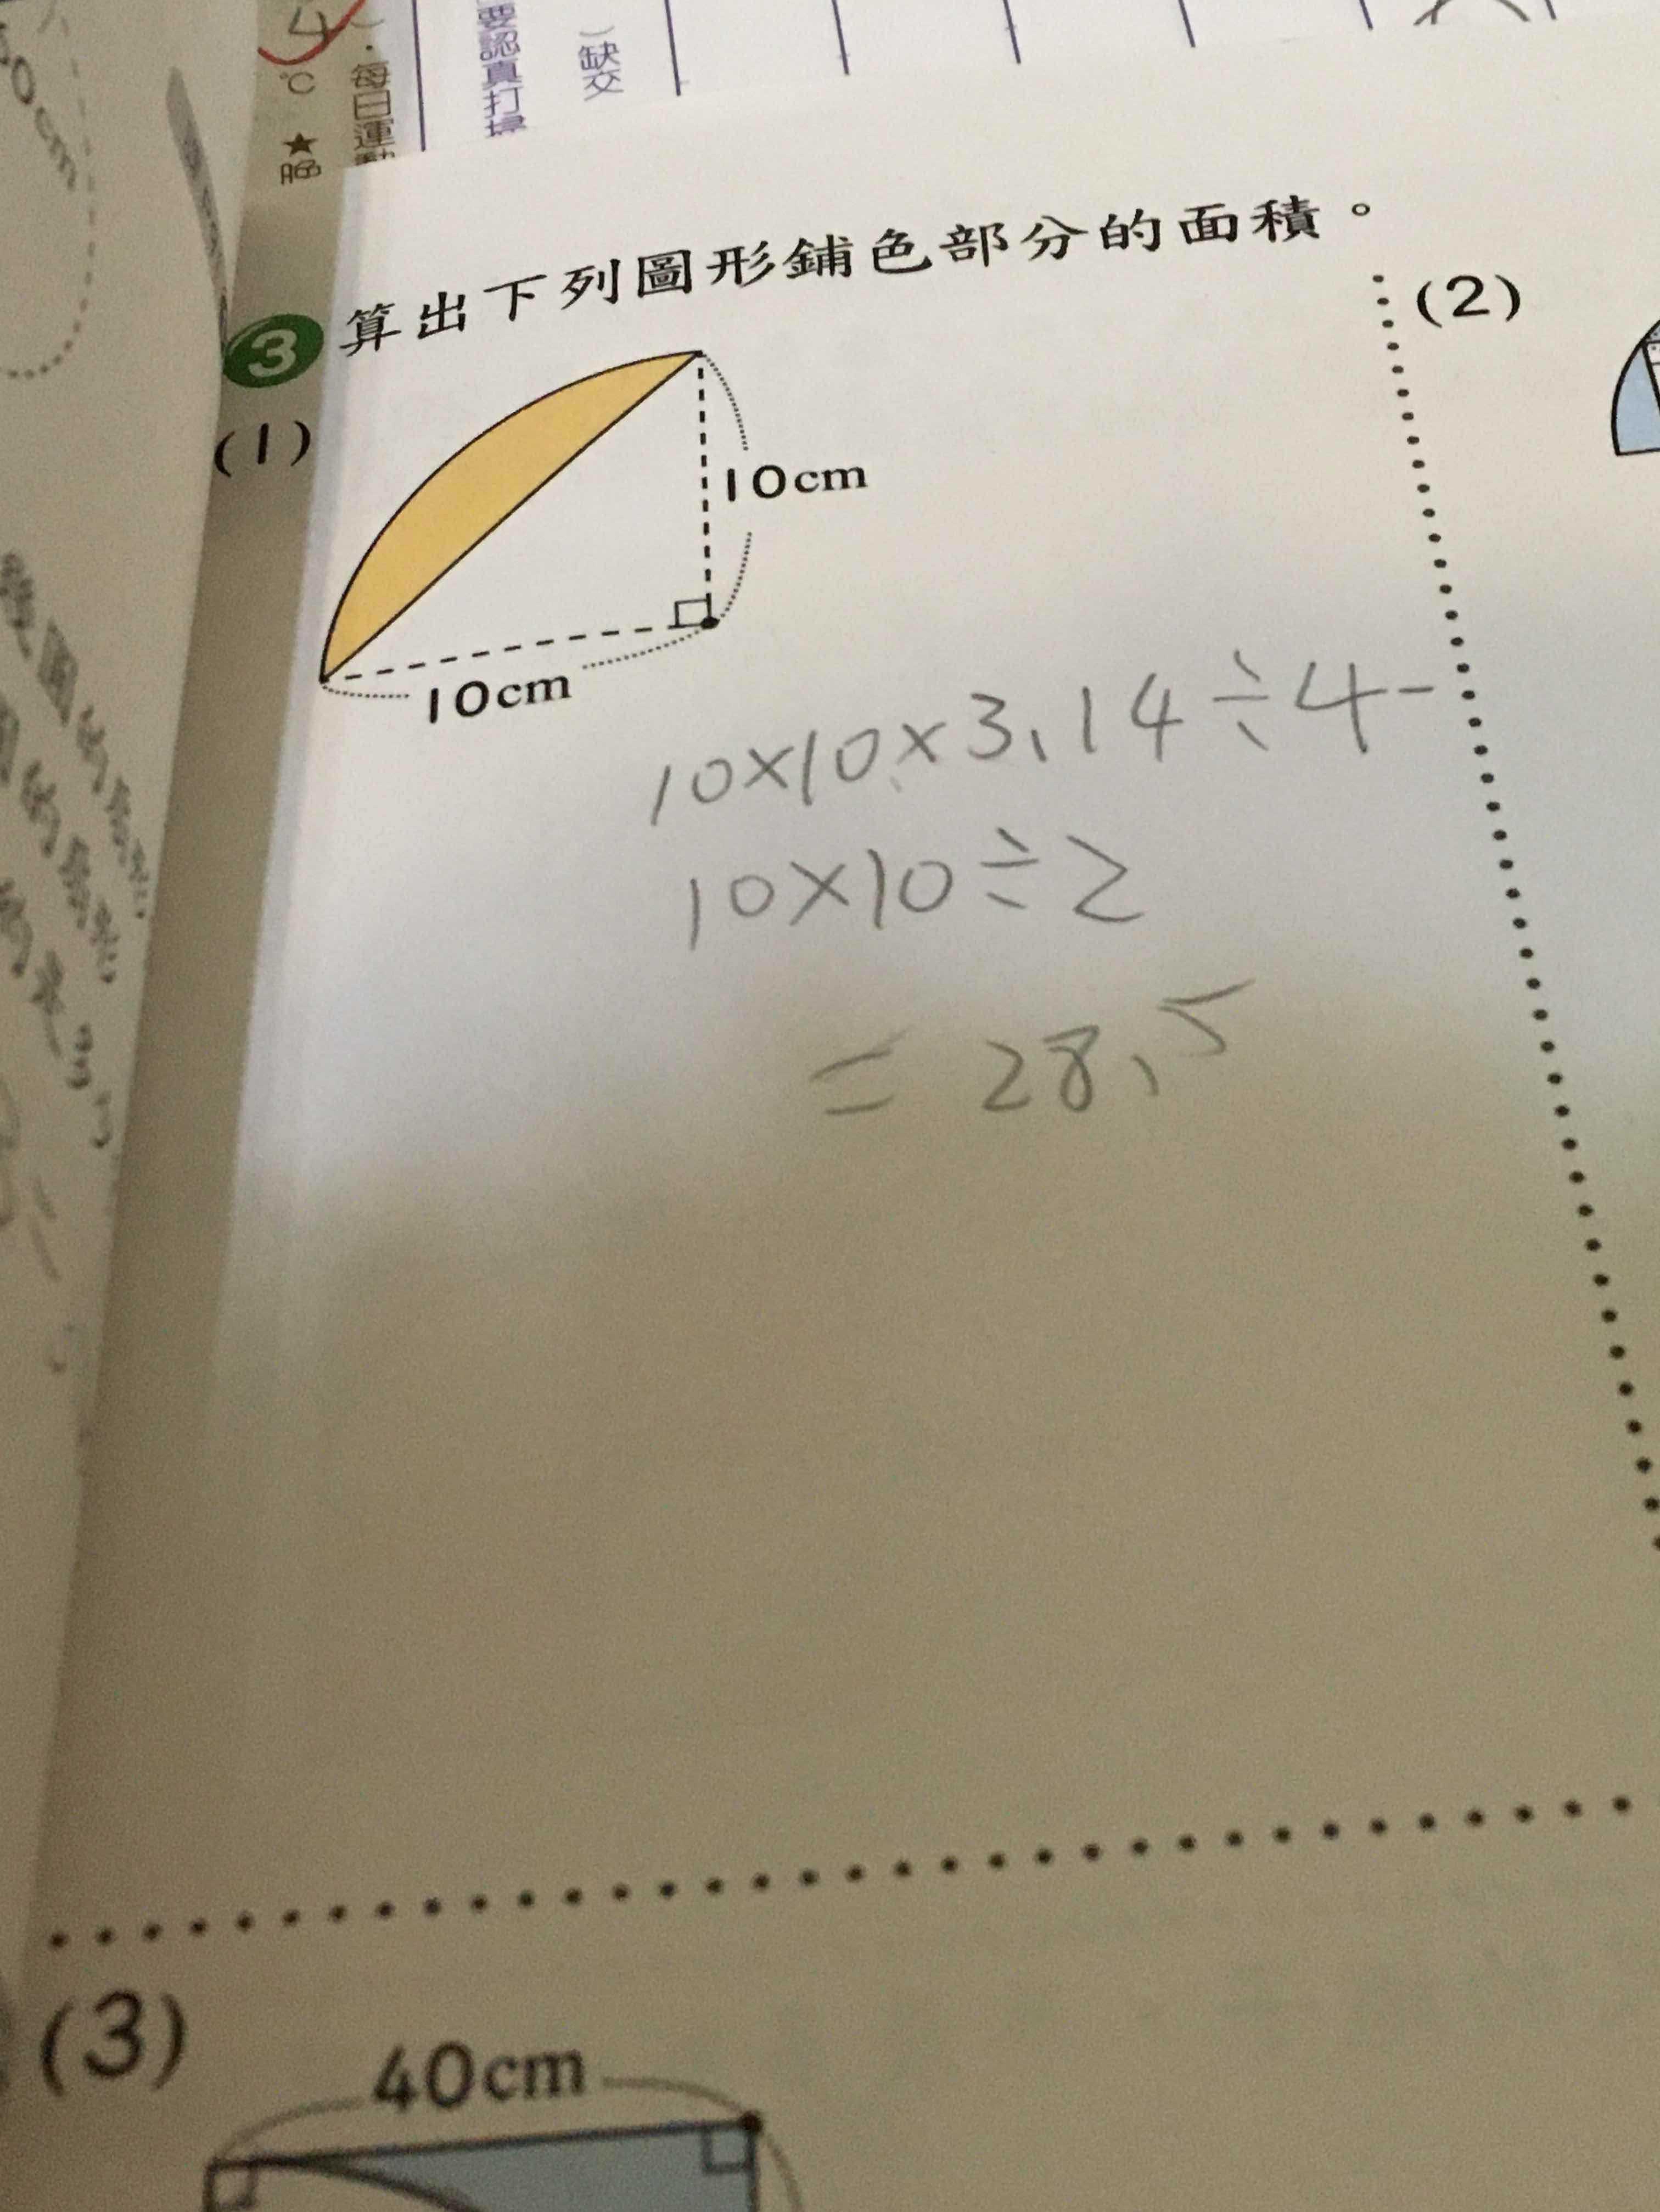 4
℃ ★晚
)．每日運動
要認真打掃
)缺交
0cm
3 算出下列圖形鋪色部分的面積。
(1)
(2)
10cm
10cm
10×10×3.14÷4-
10×10÷2
= 28.5
(3)
40cm